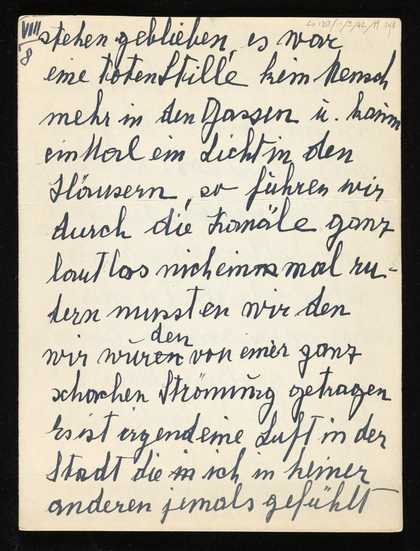 VIII
8
stehen geblieben, es war
eine totenStille kein Mensch
mehr in den Gassen u. kaum
einMal ein Licht in den
Häusern, so fuhren wir
durch die Kanäle ganz
lautlos nicheinm mal ru-
dern mussten wir den
wir wurden von einer ganz
schachen Strömung getragen
Es ist irgendeine Luft in der
Stadt die in ich in keiner
anderen jemals gefühlt